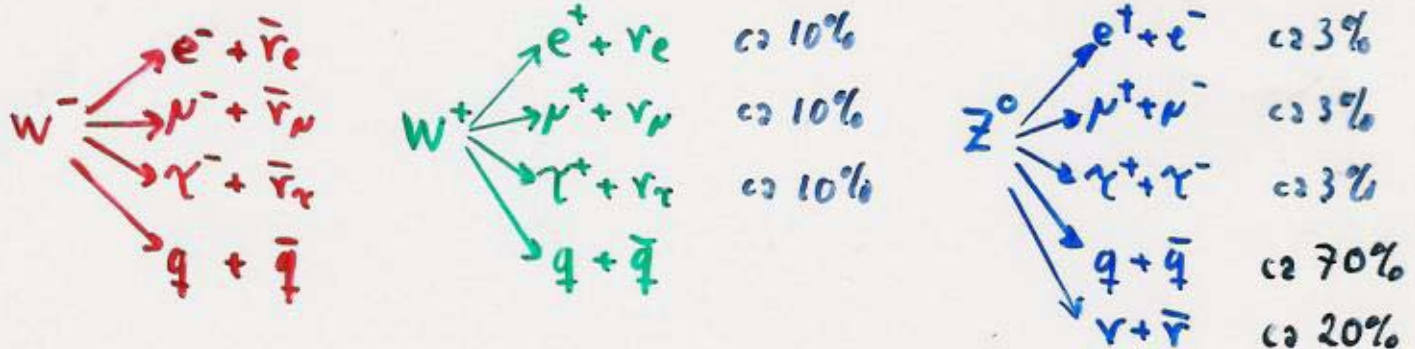 W⁻ → e⁻ + ν̄e
→ μ⁻ + ν̄μ
→ τ⁻ + ν̄τ
→ q + q̄
W⁺ → e⁺ + νe ca 10%
→ μ⁺ + νμ ca 10%
→ τ⁺ + ντ ca 10%
→ q + q̄
Z⁰ → e⁺ + e⁻ ca 3%
→ μ⁺ + μ⁻ ca 3%
→ τ⁺ + τ⁻ ca 3%
→ q + q̄ ca 70%
→ ν + ν̄ ca 20%